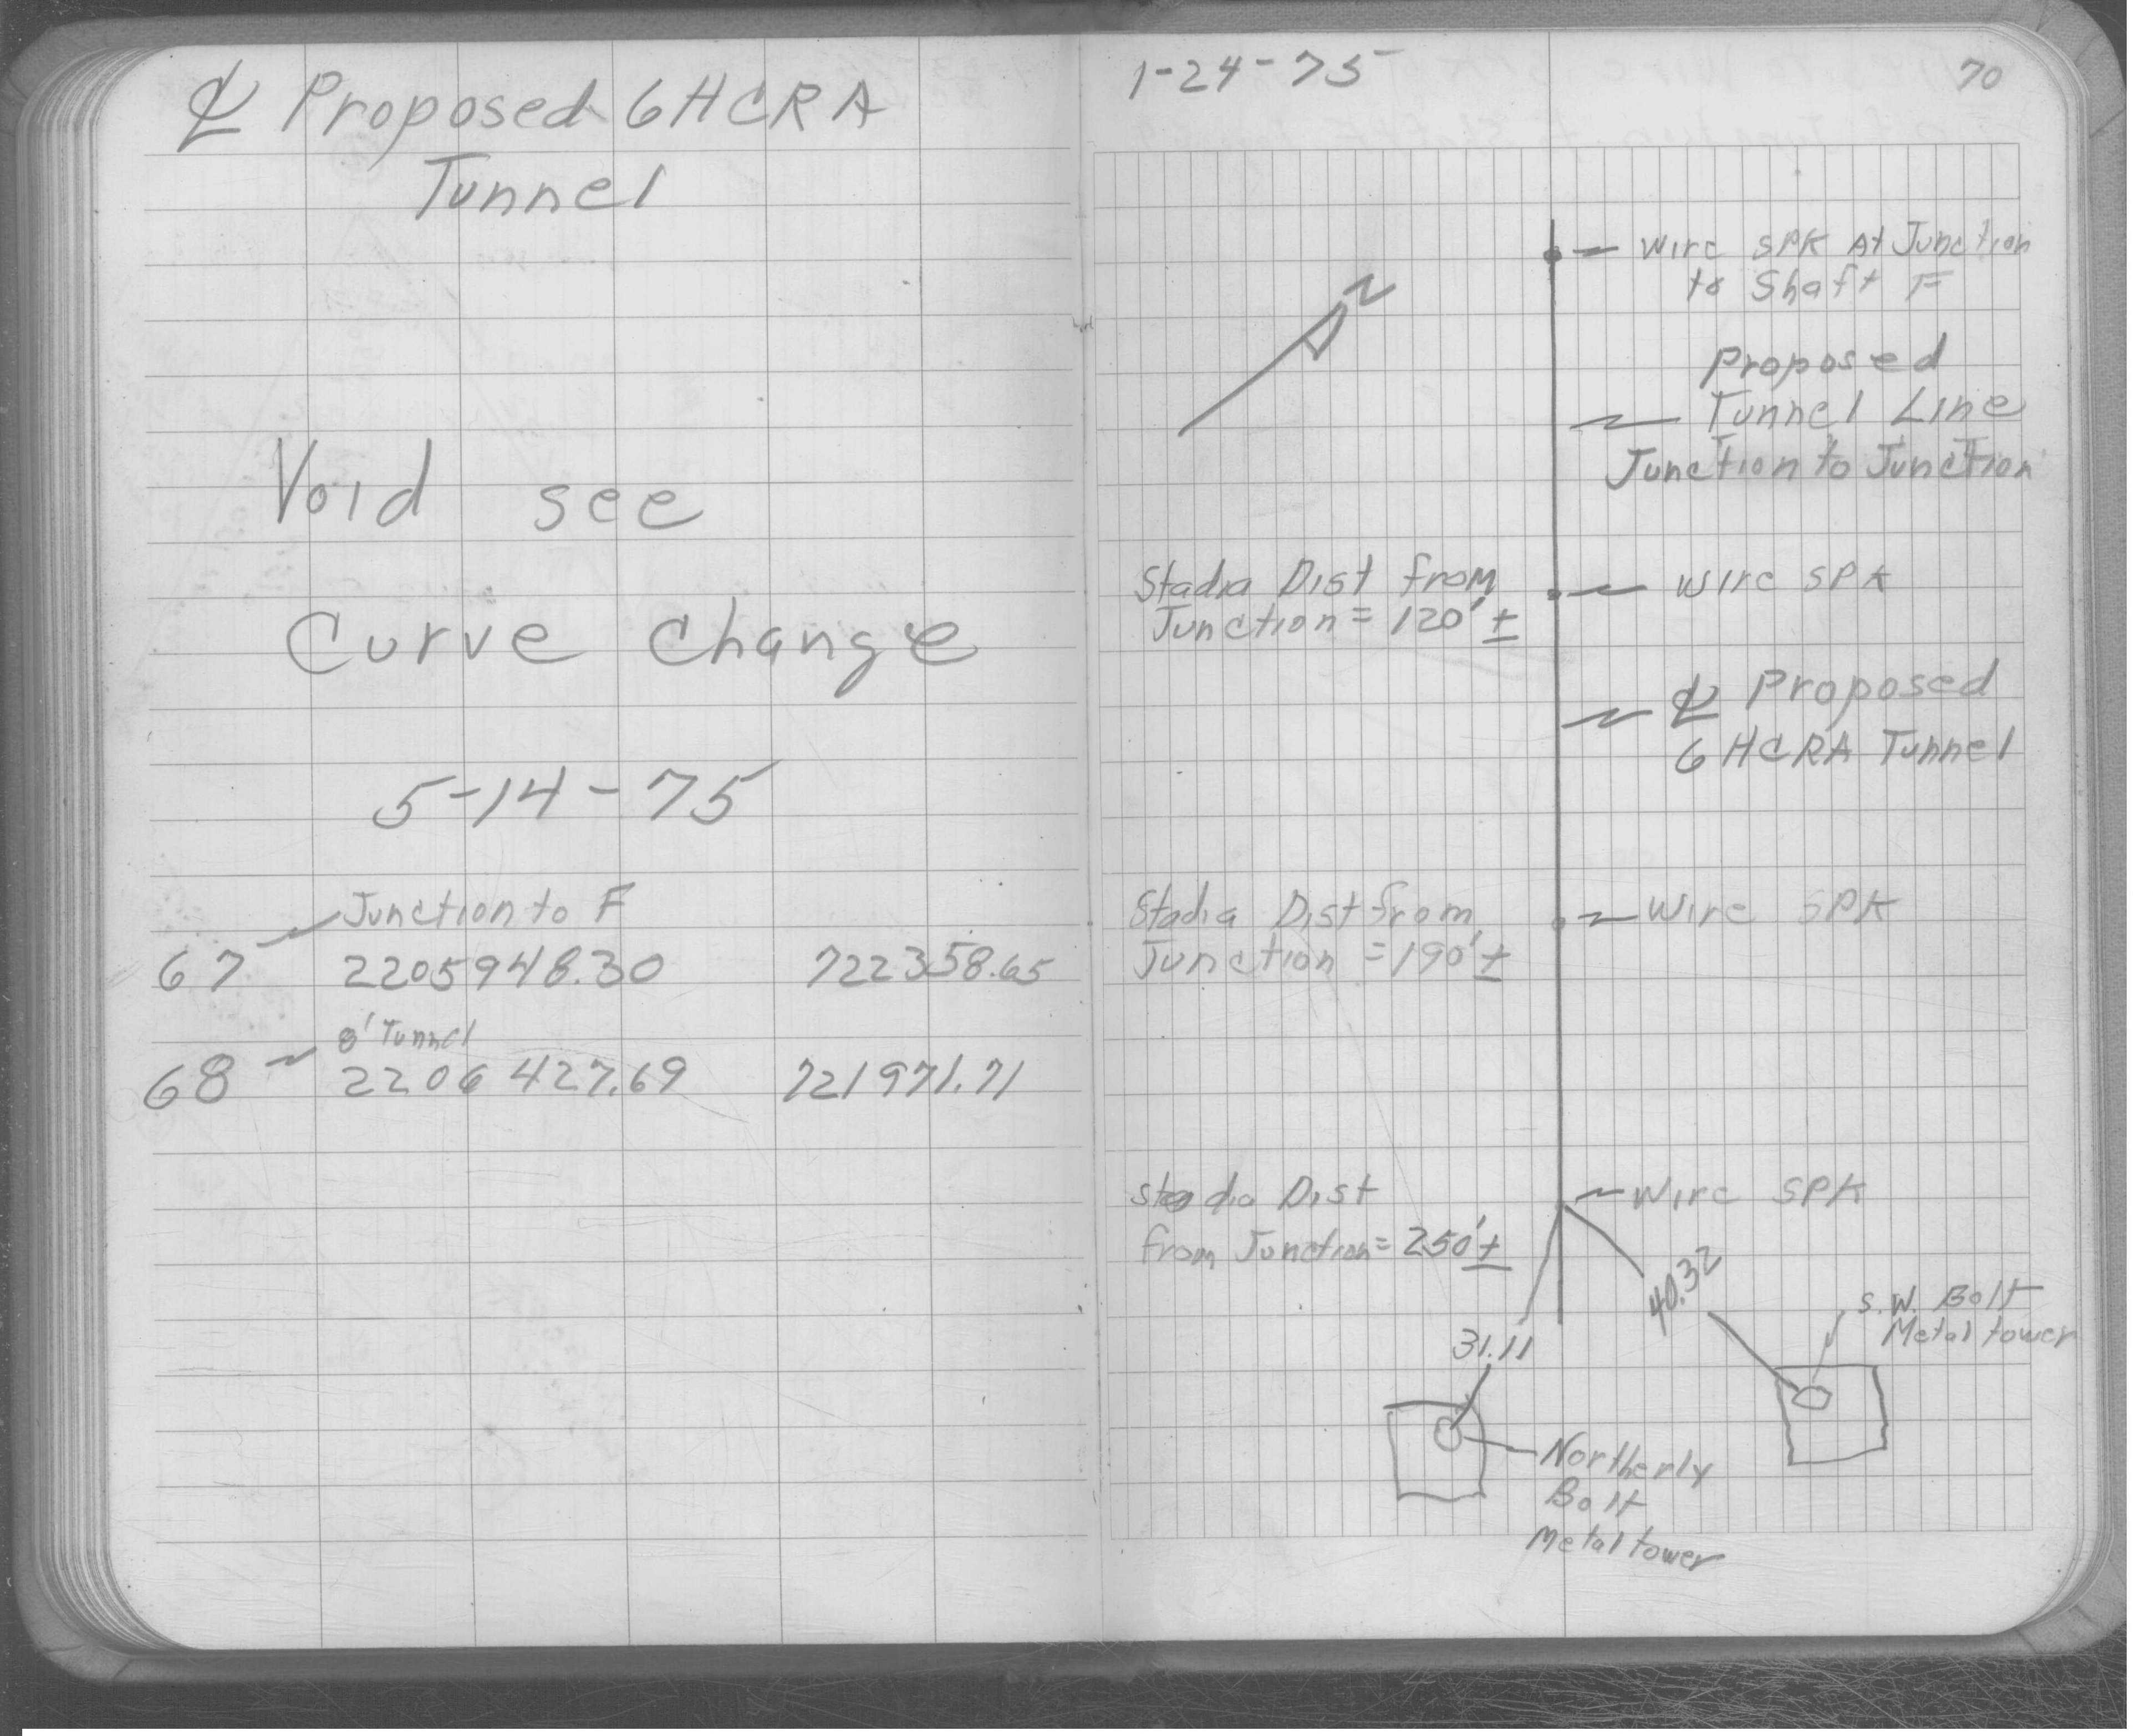 ℄ Proposed 6HCRA
Tunnel
Void see
Curve change
5-14-75
Junction to F
67 2205948.30 722358.65
8' Tunnel
68 2206427.69 721971.71
1-24-75
70
N
Wire SPK At Junction
to Shaft F
Proposed
Tunnel Line
Junction to Junction
Stadia Dist from
Junction = 120' ±
Wire SPK
℄ Proposed
6 HCRA Tunnel
Stadia Dist from
Junction = 190' ±
Wire SPK
Stadia Dist
from Junction = 250' ±
Wire SPK
40.32
31.11
S.W. Bolt
Metal tower
Northerly
Bolt
Metal tower